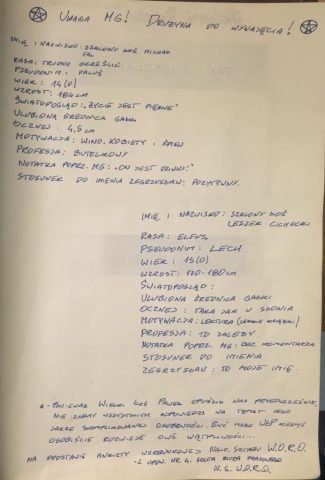 UWAGA MG! DRUŻYNA DO WYNAJĘCIA!
IMIĘ I NAZWISKO: SZALONY ŁOŚ MICHAŁ
FAL
RASA: TRUDNO OKREŚLIĆ
PSEUDONIM: FALUŚ
WIEK: 14(0)
WZROST: 184 CM
ŚWIATOPOGLĄD: „ŻYCIE JEST PIĘKNE"
ULUBIONA ŚREDNICA GAŁKI
OCZNEJ: 4,5 CM
MOTYWACJA: WINO, KOBIETY I ŚPIEW
PROFESJA: BUTELKOWY
NOTATKA POPRZ. MG: „ON JEST DZIWNY!"
STOSUNEK DO IMIENIA ZEGRZYSŁAW: POZYTYWNY.
IMIĘ I NAZWISKO: SZALONY ŁOŚ
LESZEK CICHOCKI
RASA: ELFUS
PSEUDONIM: LECH
WIEK: 15(0)
WZROST: 170-180 CM
ŚWIATOPOGLĄD:
ULUBIONA ŚREDNICA GAŁKI
OCZNEJ: TAKA JAK U SŁONIA
MOTYWACJA: LEKTURA
PROFESJA: TO ZALEŻY
NOTATKA POPRZ. MG: BEZ KOMENTARZA
STOSUNEK DO IMIENIA
ZEGRZYSŁAW: TO MOJE IMIĘ.
PONIEWAŻ WIELKI ŁOŚ PAWEŁ OPUŚCIŁ NAS PRZEDWCZEŚNIE,
NIE ZNAMY WSZYSTKICH ODPOWIEDZI NA TEMAT JEGO
SKOMPLIKOWANEJ OSOBOWOŚCI. BYĆ MOŻE WŁP KIEDYŚ
OSOBIŚCIE ROZWIEJE OWE WĄTPLIWOŚCI...
NA PODSTAWIE ANKIETY WERBUNKOWEJ NACZ. SZTABU W.O.R.D.
UPOW. NR 4. SZEFA BIURA PRASOWEGO
N.S. W.O.R.D.